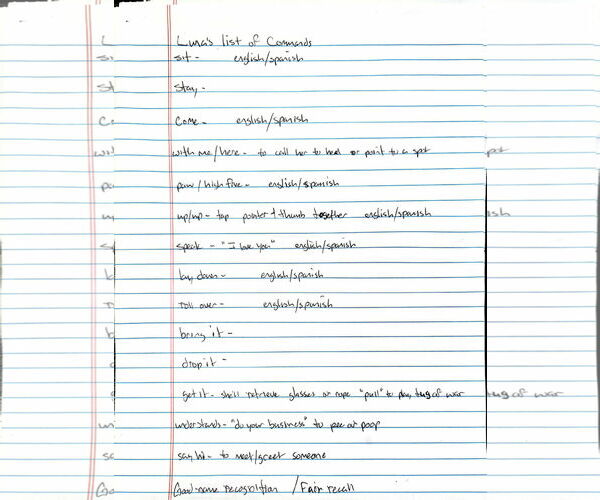 Luna's list of Commands
sit - english/spanish
stay -
Come - english/spanish
with me/here - to call her to heel or point to a spot
paw/high five - english/spanish
up/up - tap pointer + thumb together english/spanish
speak - "I love you" english/spanish
lay down - english/spanish
roll over - english/spanish
bring it -
drop it -
get it - she'll retrieve glasses or rope "pull" to play tug of war
understands - "do your business" to pee or poop
say hi - to meet/greet someone
Good name recognition / Fair recall